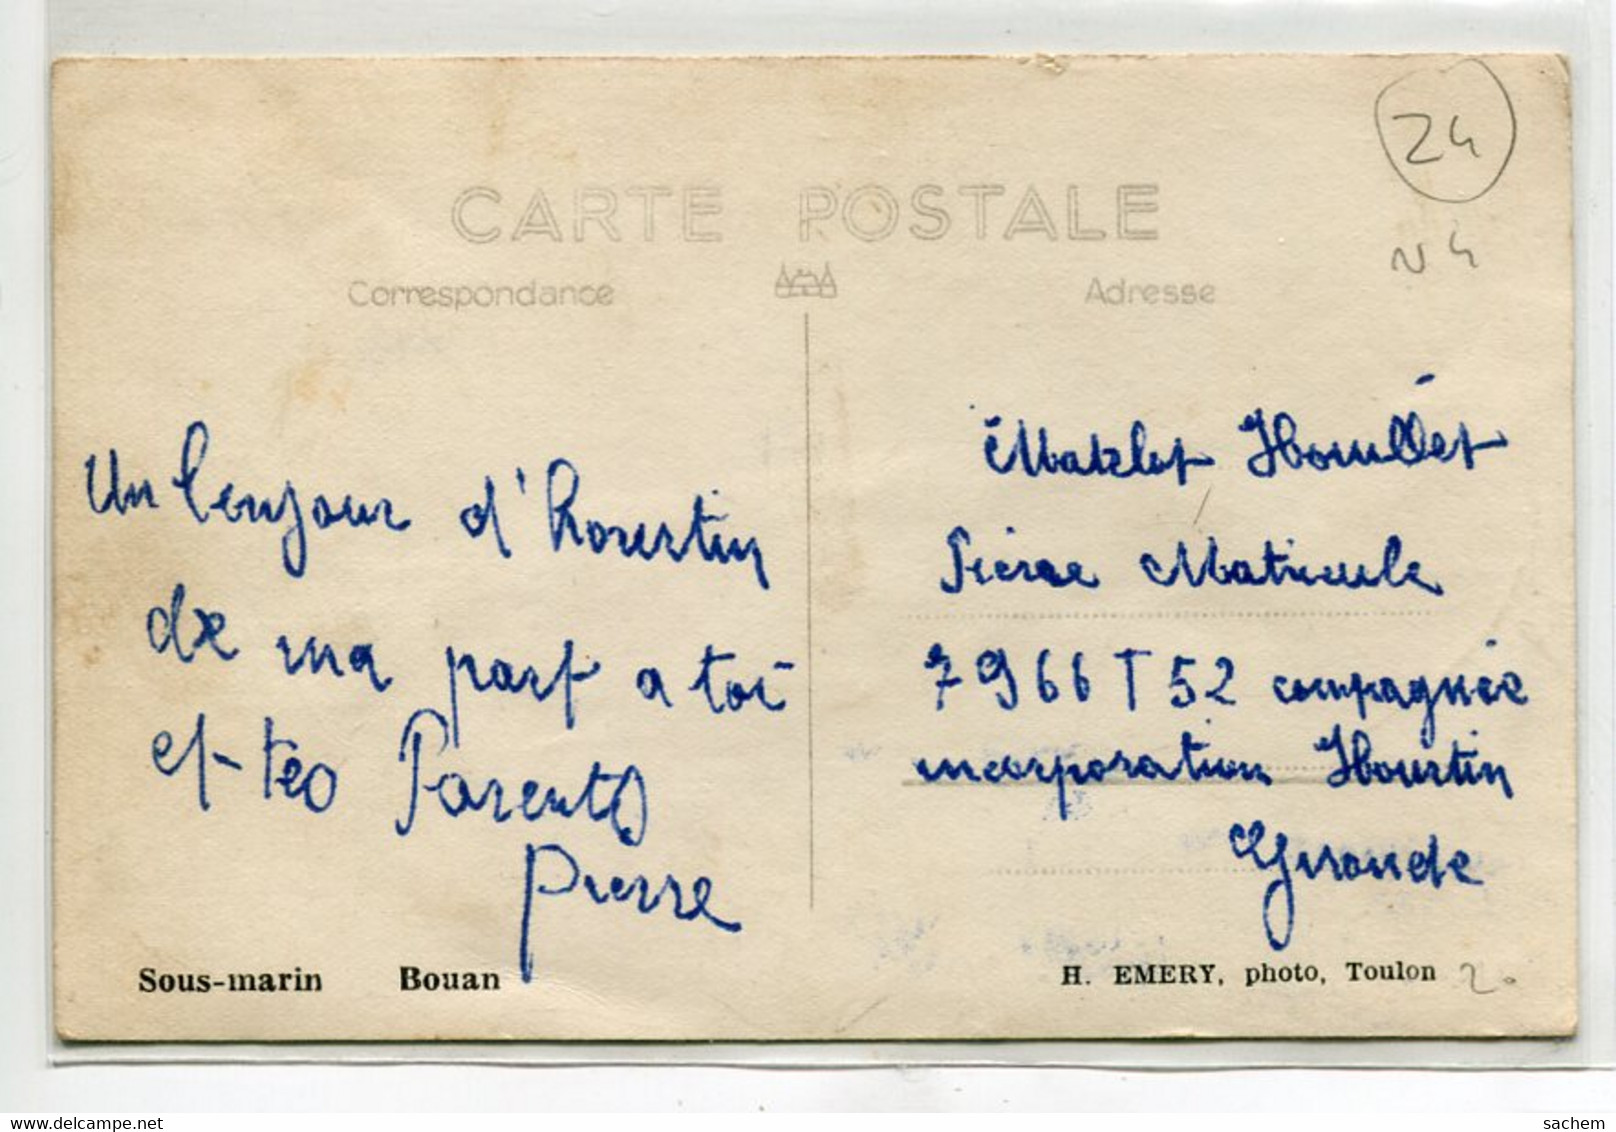 CARTE POSTALE
Correspondance
Adresse
24
N 4
Un bonjour d'hourtin
de ma part a toi
et tes Parents
pierre
Matelot Houllet
Pierre Matricule
7966 T 52 compagnie
incorporation Hourtin
Gironde
Sous-marin Bouan
H. EMERY, photo, Toulon 2.
delcampe.net
sachem